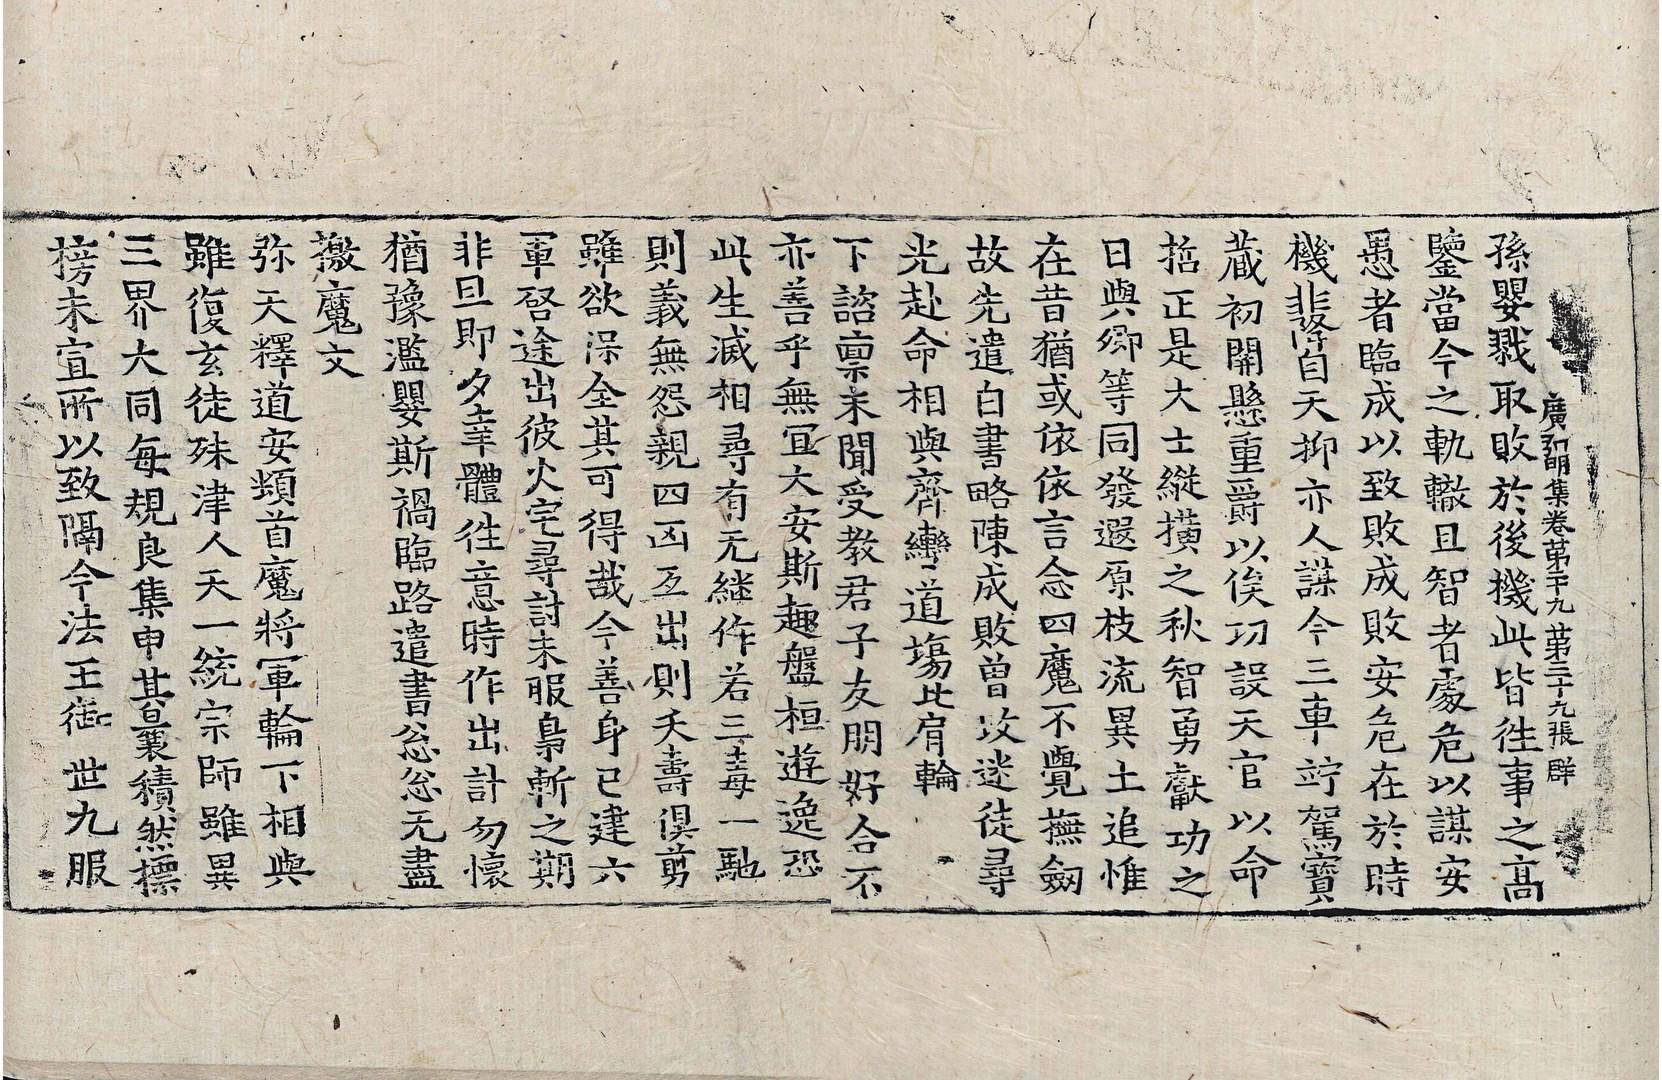 廣弘明集卷第二十九 第三十九張 群
孫嬰戮取敗於後機此皆徃事之高
鑒當今之軌轍且智者處危以謀安
愚者臨成以致敗成敗安危在於時
機非降自天抑亦人謀今三車竚駕寶
蔵初開懸重爵以俟功設天官以命
哲正是大士縱撗之秋智勇獻功之
日與卿等同發遐原枝流異土追惟
在昔猶或依依言念四魔不覺撫劔
故先遣白書略陳成敗曽攻迷徒尋
光赴命相與齊轡道場比肩輪
下諮稟未聞受教君子友朋好合不
亦善乎無冝大安斯趣盤桓遊逸恐
此生滅相尋有无継作若三毒一馳
則義無怨親四凶互出則夭壽俱剪
雖欲深全其可得哉今善身已建六
軍啓途出彼火宅尋討未服梟斬之期
非旦即夕幸體徃意時作出計勿懷
猶豫濫嬰斯禍臨路遣書忩忩无盡
檄魔文
弥天釋道安頻首魔將軍輪下相與
雖復玄徒殊津人天一統宗師雖異
三界大同每規良集申其曩積然標
榜未宣所以致隔今法王御世九服